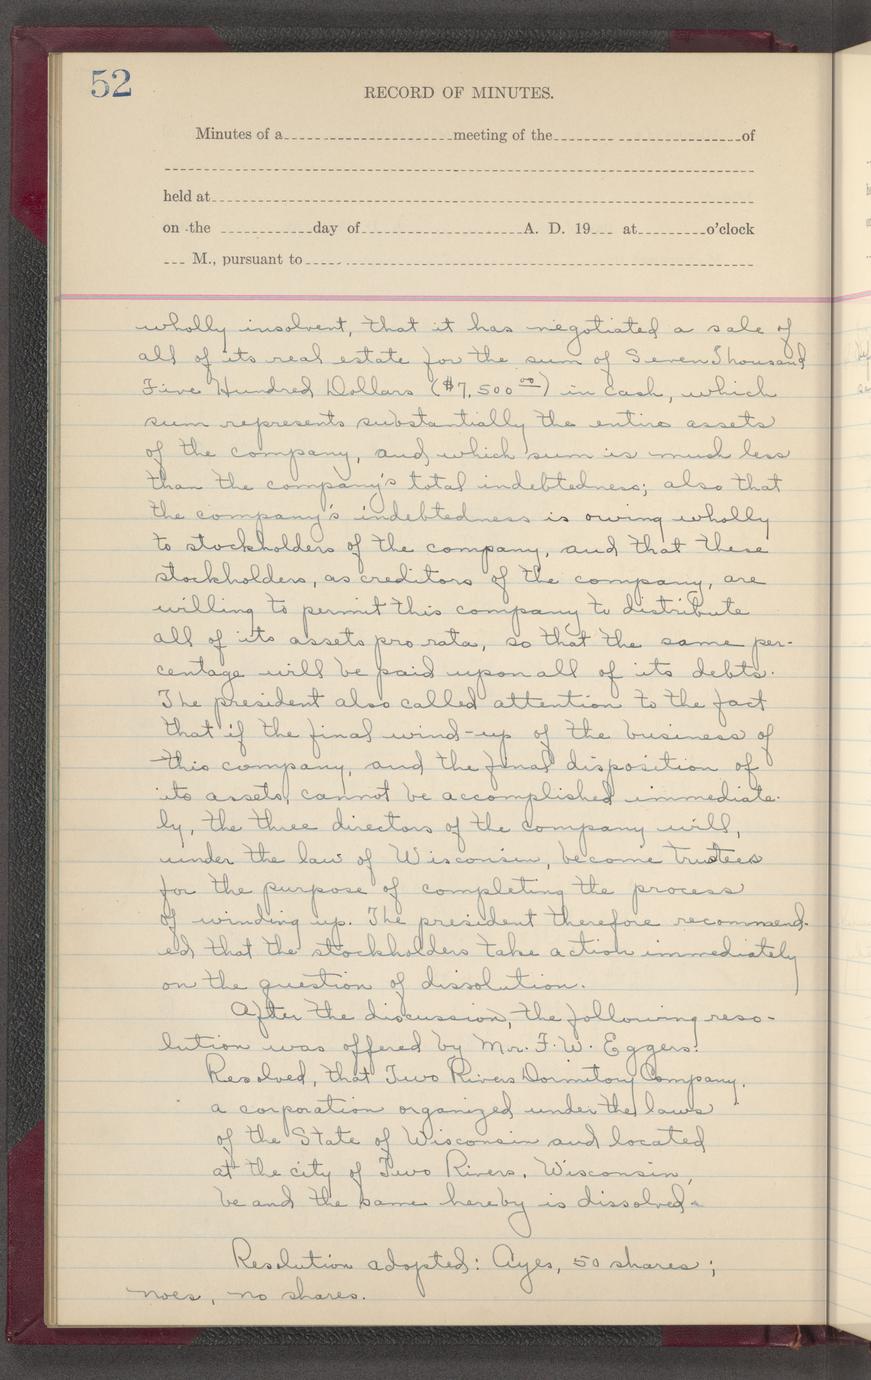 52
RECORD OF MINUTES.
Minutes of a meeting of the of
held at
on the day of A. D. 19 at o'clock
M., pursuant to
wholly insolvent, that it has negotiated a sale of
all of its real estate for the sum of Seven Thousand
Five Hundred Dollars ($7,500 00) in cash, which
sum represents substantially the entire assets
of the company, and which sum is much less
than the company's total indebtedness; also that
the company's indebtedness is owing wholly
to stockholders of the company, and that these
stockholders, as creditors of the company, are
willing to permit this company to distribute
all of its assets pro rata, so that the same per-
centage will be paid upon all of its debts.
The president also called attention to the fact
that if the final wind-up of the business of
this company, and the final disposition of
its assets, cannot be accomplished immediate-
ly, the three directors of the company will,
under the law of Wisconsin, become trustees
for the purpose of completing the process
of winding up. The president therefore recommend-
ed that the stockholders take action immediately
on the question of dissolution.
After the discussion, the following reso-
lution was offered by Mr. F. W. Eggers:
Resolved, that Two Rivers Dormitory Company,
a corporation organized under the laws
of the State of Wisconsin and located
at the city of Two Rivers, Wisconsin,
be and the same hereby is dissolved.
Resolution adopted: Ayes, 50 shares;
noes, no shares.